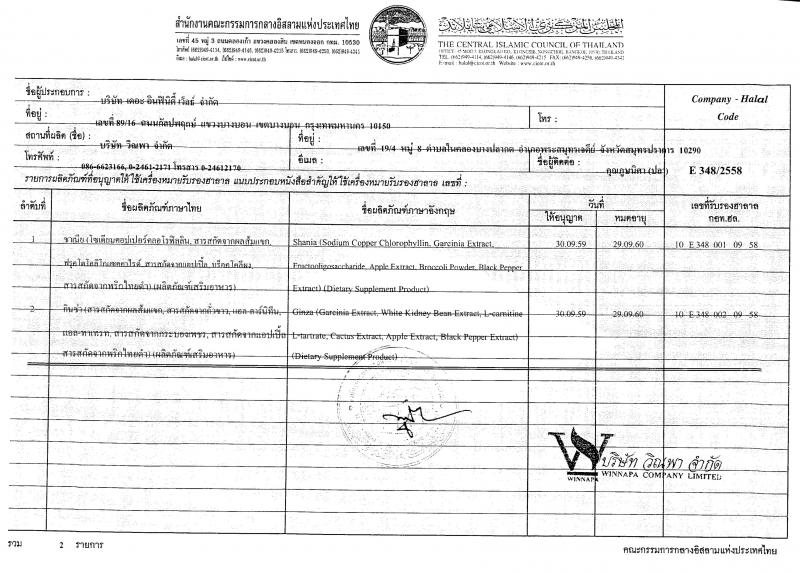 สำนักงานคณะกรรมการกลางอิสลามแห่งประเทศไทย
เลขที่ 45 หมู่ 3 ถนนคลองเก้า แขวงคลองสิบ เขตหนองจอก กทม. 10530
โทรศัพท์ (662)949-4114, (662)949-4146, (662)949-4215 โทรสาร (662)949-4250, (662)949-4341
อีเมล : halal@cicot.or.th เว็บไซต์ : www.cicot.or.th
THE CENTRAL ISLAMIC COUNCIL OF THAILAND
TEL. (662)949-4114, (662)949-4146, (662)949-4215 FAX: (662)949-4250, (662)949-4341
E-mail : halal@cicot.or.th Website : www.cicot.or.th
ชื่อผู้ประกอบการ : บริษัท เดอะ อินฟินิตี้ เวิลธ์ จำกัด
Company - Halal
Code
ที่อยู่ : เลขที่ 89/16 ถนนกัลปพฤกษ์ แขวงบางบอน เขตบางบอน กรุงเทพมหานคร 10150
โทร :
สถานที่ผลิต (ชื่อ) : บริษัท วิณพา จำกัด
ที่อยู่ : เลขที่ 19/4 หมู่ 8 ตำบลในคลองบางปลากด อำเภอพระสมุทรเจดีย์ จังหวัดสมุทรปราการ 10290
โทรศัพท์ : 086-6623166, 0-2461-2171 โทรสาร 0-24612170
อีเมล :
ชื่อผู้ติดต่อ : คุณภูษนิศา (ปลา)
E 348/2558
รายการผลิตภัณฑ์ที่อนุญาตให้ใช้เครื่องหมายรับรองฮาลาล แนบประกอบหนังสือสำคัญให้ใช้เครื่องหมายรับรองฮาลาล เลขที่ :
ลำดับที่ ชื่อผลิตภัณฑ์ภาษาไทย ชื่อผลิตภัณฑ์ภาษาอังกฤษ วันที่ เลขที่รับรองฮาลาล
ให้อนุญาต หมดอายุ กอท.ฮล.
1 ชาเนีย (โซเดียมคอปเปอร์คลอโรฟิลลิน, สารสกัดจากผลส้มแขก, Shania (Sodium Copper Chlorophyllin, Garcinia Extract, 30.09.59 29.09.60 10 E 348 001 09 58
ฟรุคโตโอลิโกแซคคาไรด์, สารสกัดจากแอปเปิ้ล, บร็อคโคลีผง, Fructooligosaccharide, Apple Extract, Broccoli Powder, Black Pepper
สารสกัดจากพริกไทยดำ) (ผลิตภัณฑ์เสริมอาหาร) Extract) (Dietary Supplement Product)
2 กินซ่า (สารสกัดจากผลส้มแขก, สารสกัดจากถั่วขาว, แอล-คาร์นิทีน, Ginza (Garcinia Extract, White Kidney Bean Extract, L-carnitine 30.09.59 29.09.60 10 E 348 002 09 58
แอล-ทาเทรท, สารสกัดจากกระบองเพชร, สารสกัดจากแอปเปิ้ล L-tartrate, Cactus Extract, Apple Extract, Black Pepper Extract)
สารสกัดจากพริกไทยดำ) (ผลิตภัณฑ์เสริมอาหาร) (Dietary Supplement Product)
WINNAPA
บริษัท วิณพา จำกัด
WINNAPA COMPANY LIMITED
รวม 2 รายการ
คณะกรรมการกลางอิสลามแห่งประเทศไทย